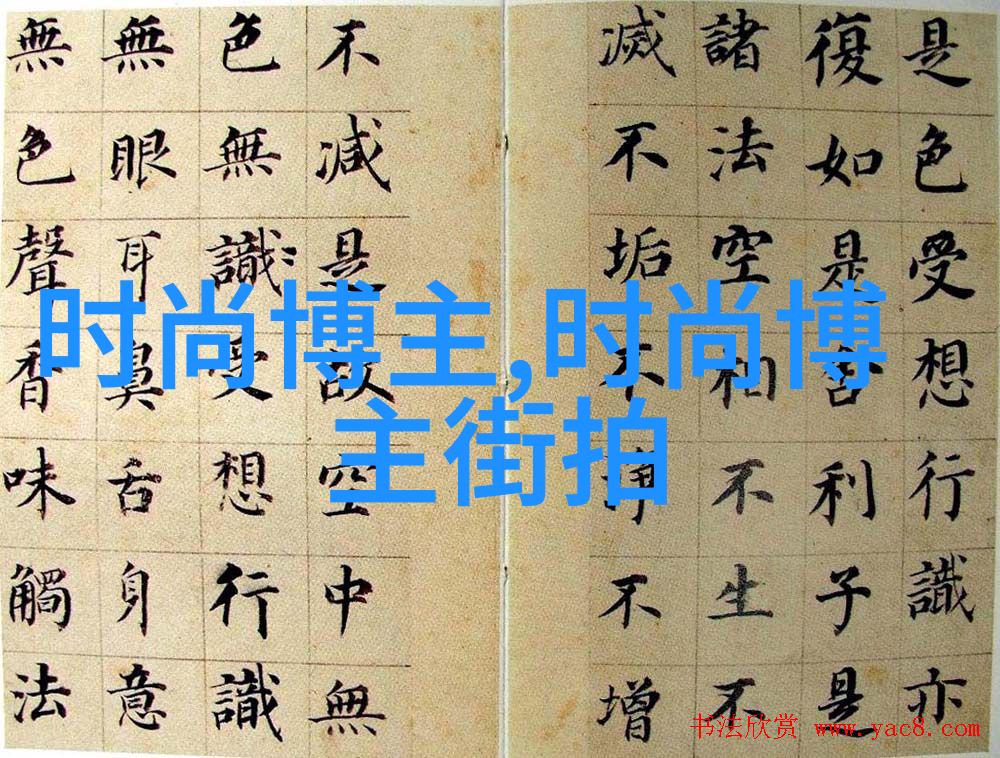 是色受想行識亦
復如是舍利子是
諸法空相不生不
滅不垢不淨不增
不減是故空中無
色無識受想行識
無眼耳鼻舌身意
無色聲香味觸法
时尚博主,时尚博
主街拍
书法欣赏 www.yac8.com